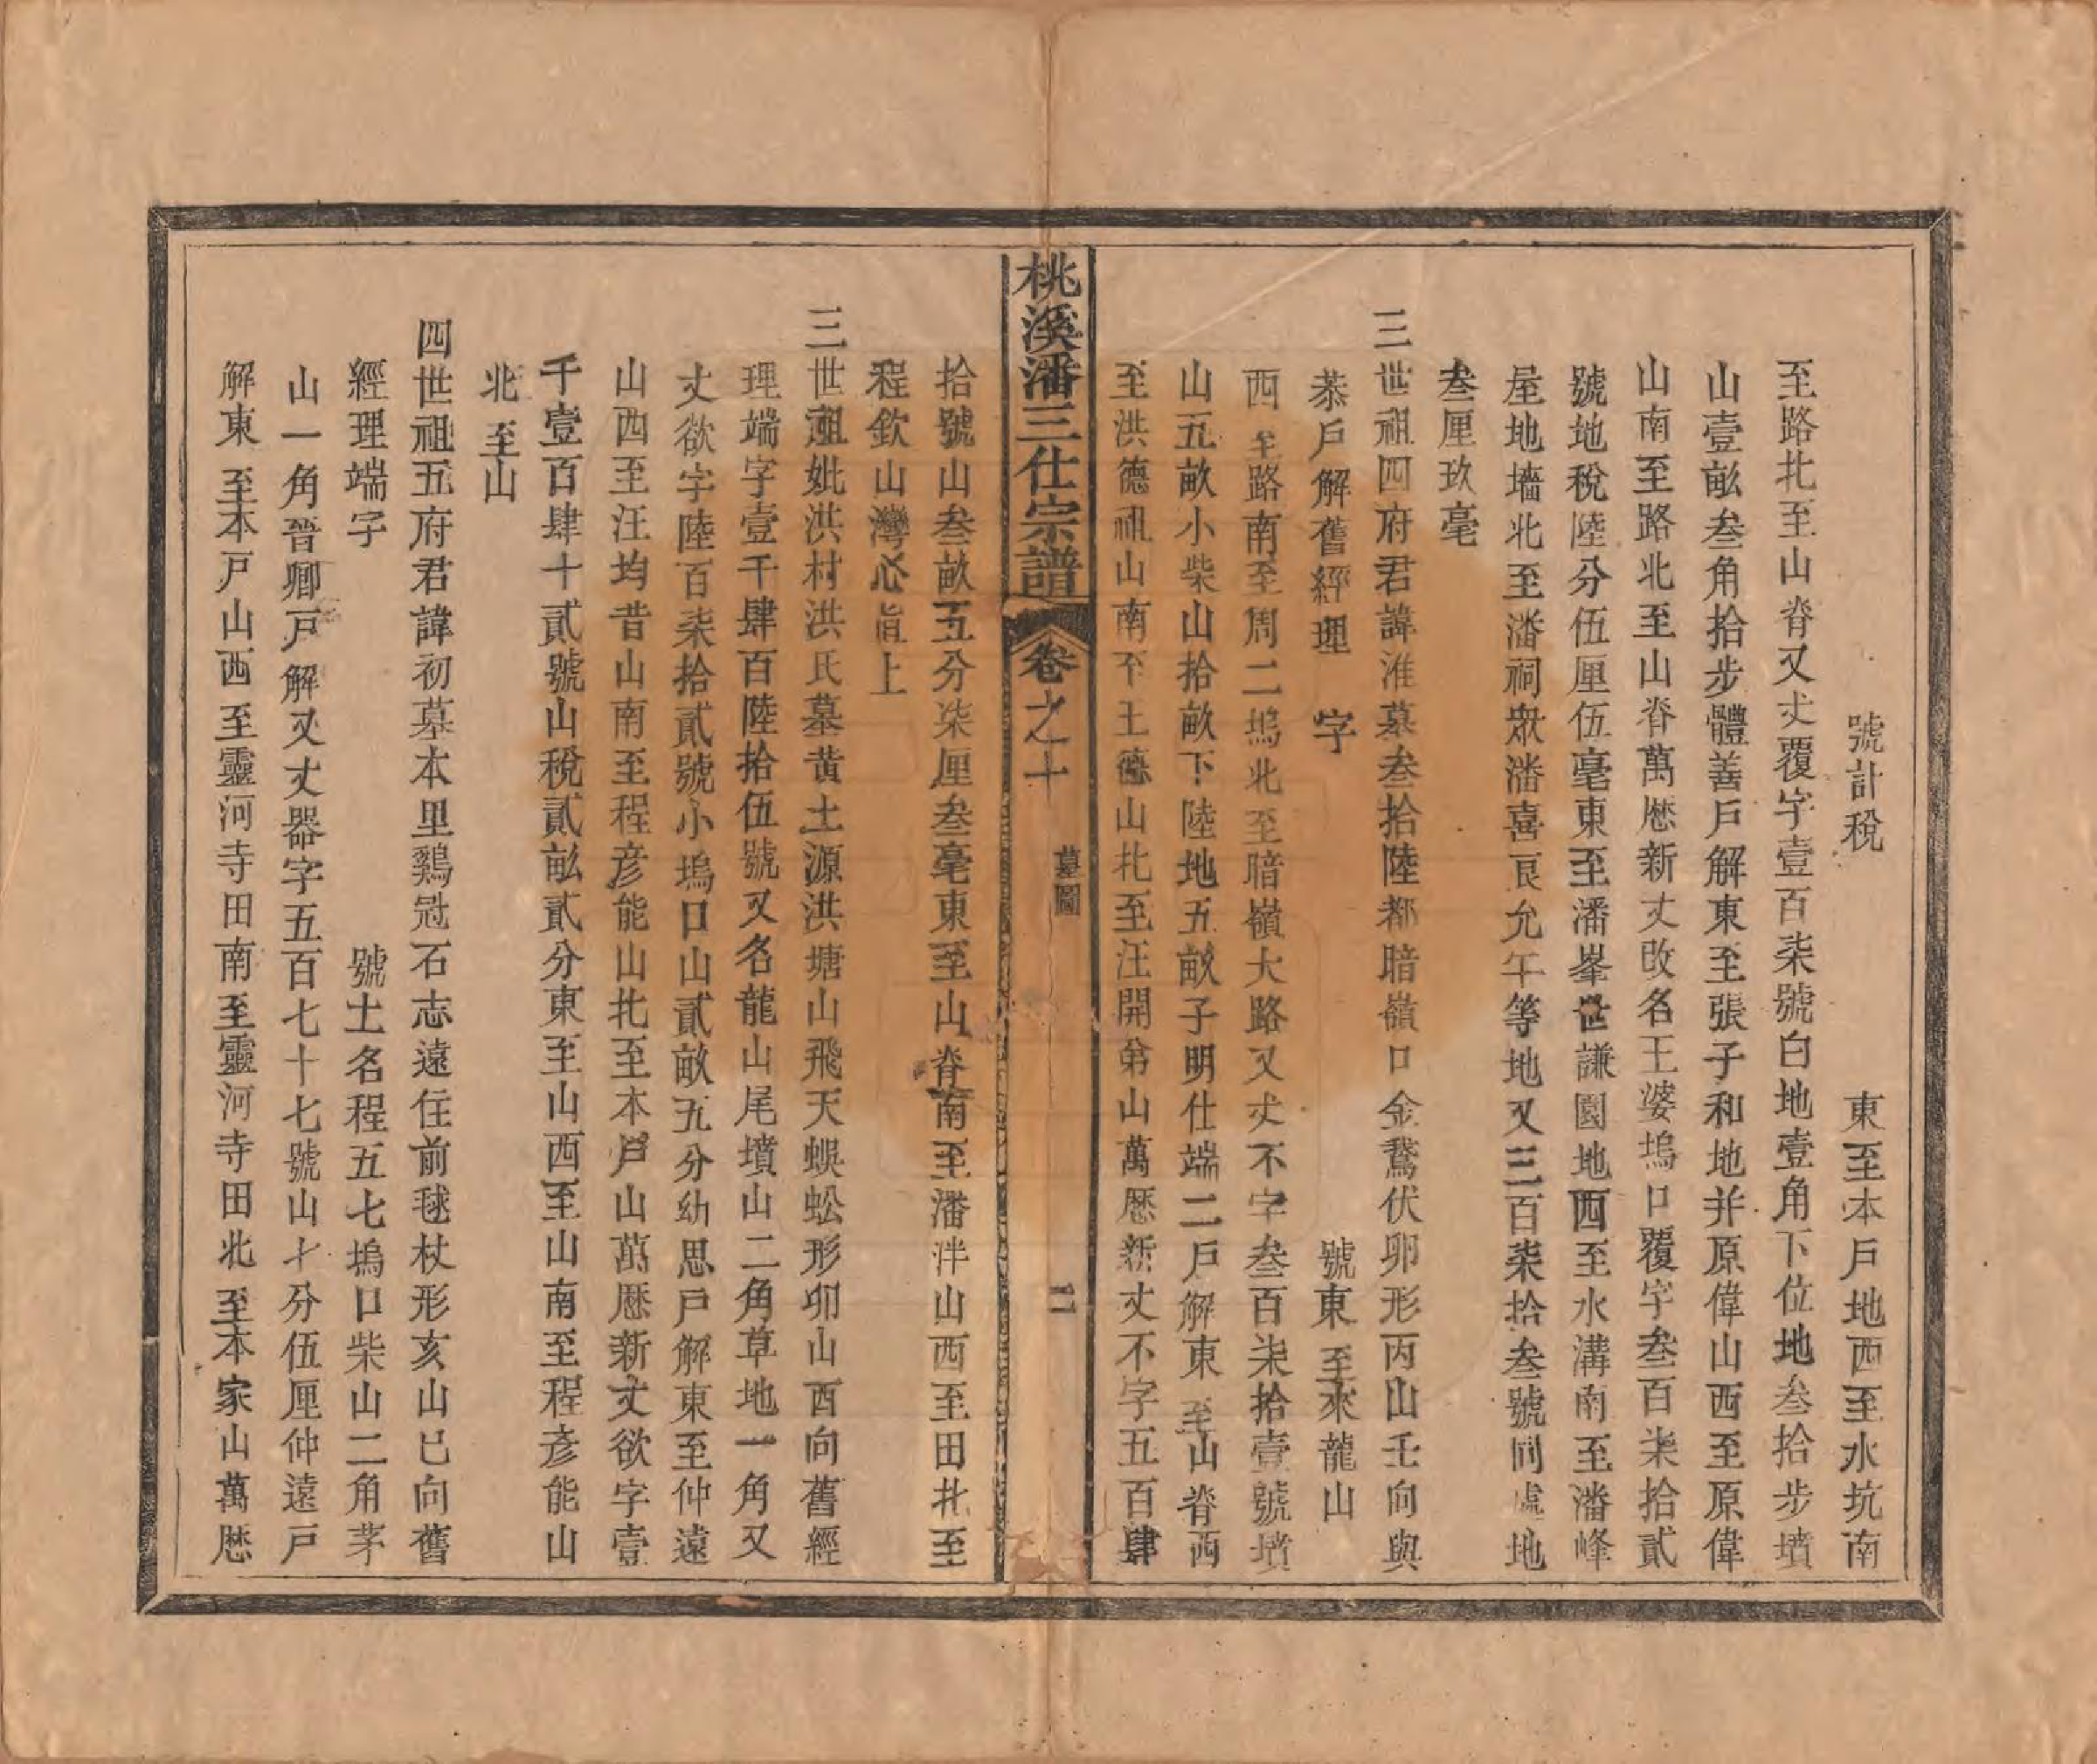 號計稅　　　　東至本戶地西至水坑南
至路北至山脊又丈覆字壹百柒號白地壹角下位地叁拾步墳
山壹畝叁角拾步體善戶解東至張子和地并原偉山西至原偉
山南至路北至山脊萬厯新丈改名王婆塢口覆字叁百柒拾貳
號地稅陸分伍厘伍毫東至潘峯世謙園地西至水溝南至潘峰
屋地墻北至潘祠眾潘喜良允午等地又三百柒拾叁號同處地
叁厘玖毫
三世祖四府君諱淮墓叁拾陸都暗嶺口金鵞伏卵形丙山壬向與
恭戶解舊經理　字　　　　　　號東至來龍山
西至路南至周二塢北至暗嶺大路又丈不字叁百柒拾壹號墳
山五畝小柴山拾畝下陸地五畝子明仕端二戶解東至山脊西
至洪德祖山南至王德山北至汪開弟山萬厯新丈不字五百肆
桃溪潘三仕宗譜　卷之十　墓圖　二
拾號山叁畝五分柒厘叁毫東至山脊南至潘泮山西至田北至
程欽山灣心直上
三世祖妣洪村洪氏墓黃土源洪塘山飛天蜈蚣形卯山酉向舊經
理端字壹千肆百陸拾伍號又名龍山尾墳山二角草地一角又
丈欲字陸百柒拾貳號小塢口山貳畝五分幼思戶解東至仲遠
山西至汪均昔山南至程彥能山北至本戶山萬厯新丈欲字壹
千壹百肆十貳號山稅貳畝貳分東至山西至山南至程彥能山
北至山
四世祖五府君諱初墓本里鷄冠石志遠住前毬杖形亥山巳向舊
經理端字　　　　　　號土名程五七塢口柴山二角茅
山一角晉卿戶解又丈器字五百七十七號山七分伍厘仲遠戶
解東至本戶山西至靈河寺田南至靈河寺田北至本家山萬厯